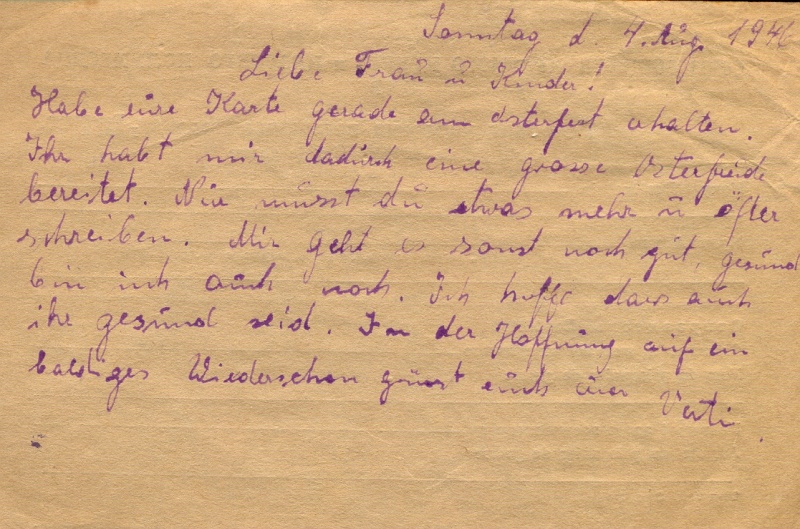 Sonntag d. 4. Aug. 1946
Liebe Frau u Kinder!
Habe eure Karte gerade am Osterfest erhalten.
Ihr habt mir dadurch eine grosse Osterfreude
bereitet. Nur müsst du etwas mehr u öfter
schreiben. Mir geht es sonst noch gut, gesund
bin ich auch noch. Ich hoffe dass auch
ihr gesund seid. In der Hoffnung auf ein
baldiges Wiedersehen grüsst euch euer Vati.